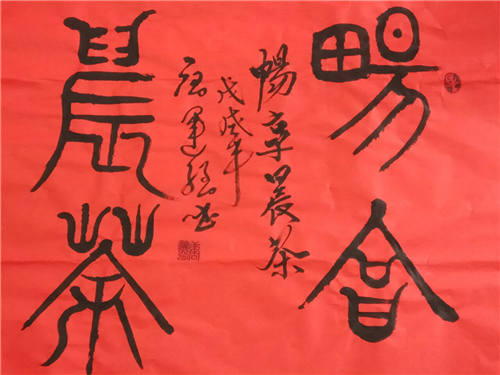 暢享
暢享晨茶
戊戌年
運
晨茶